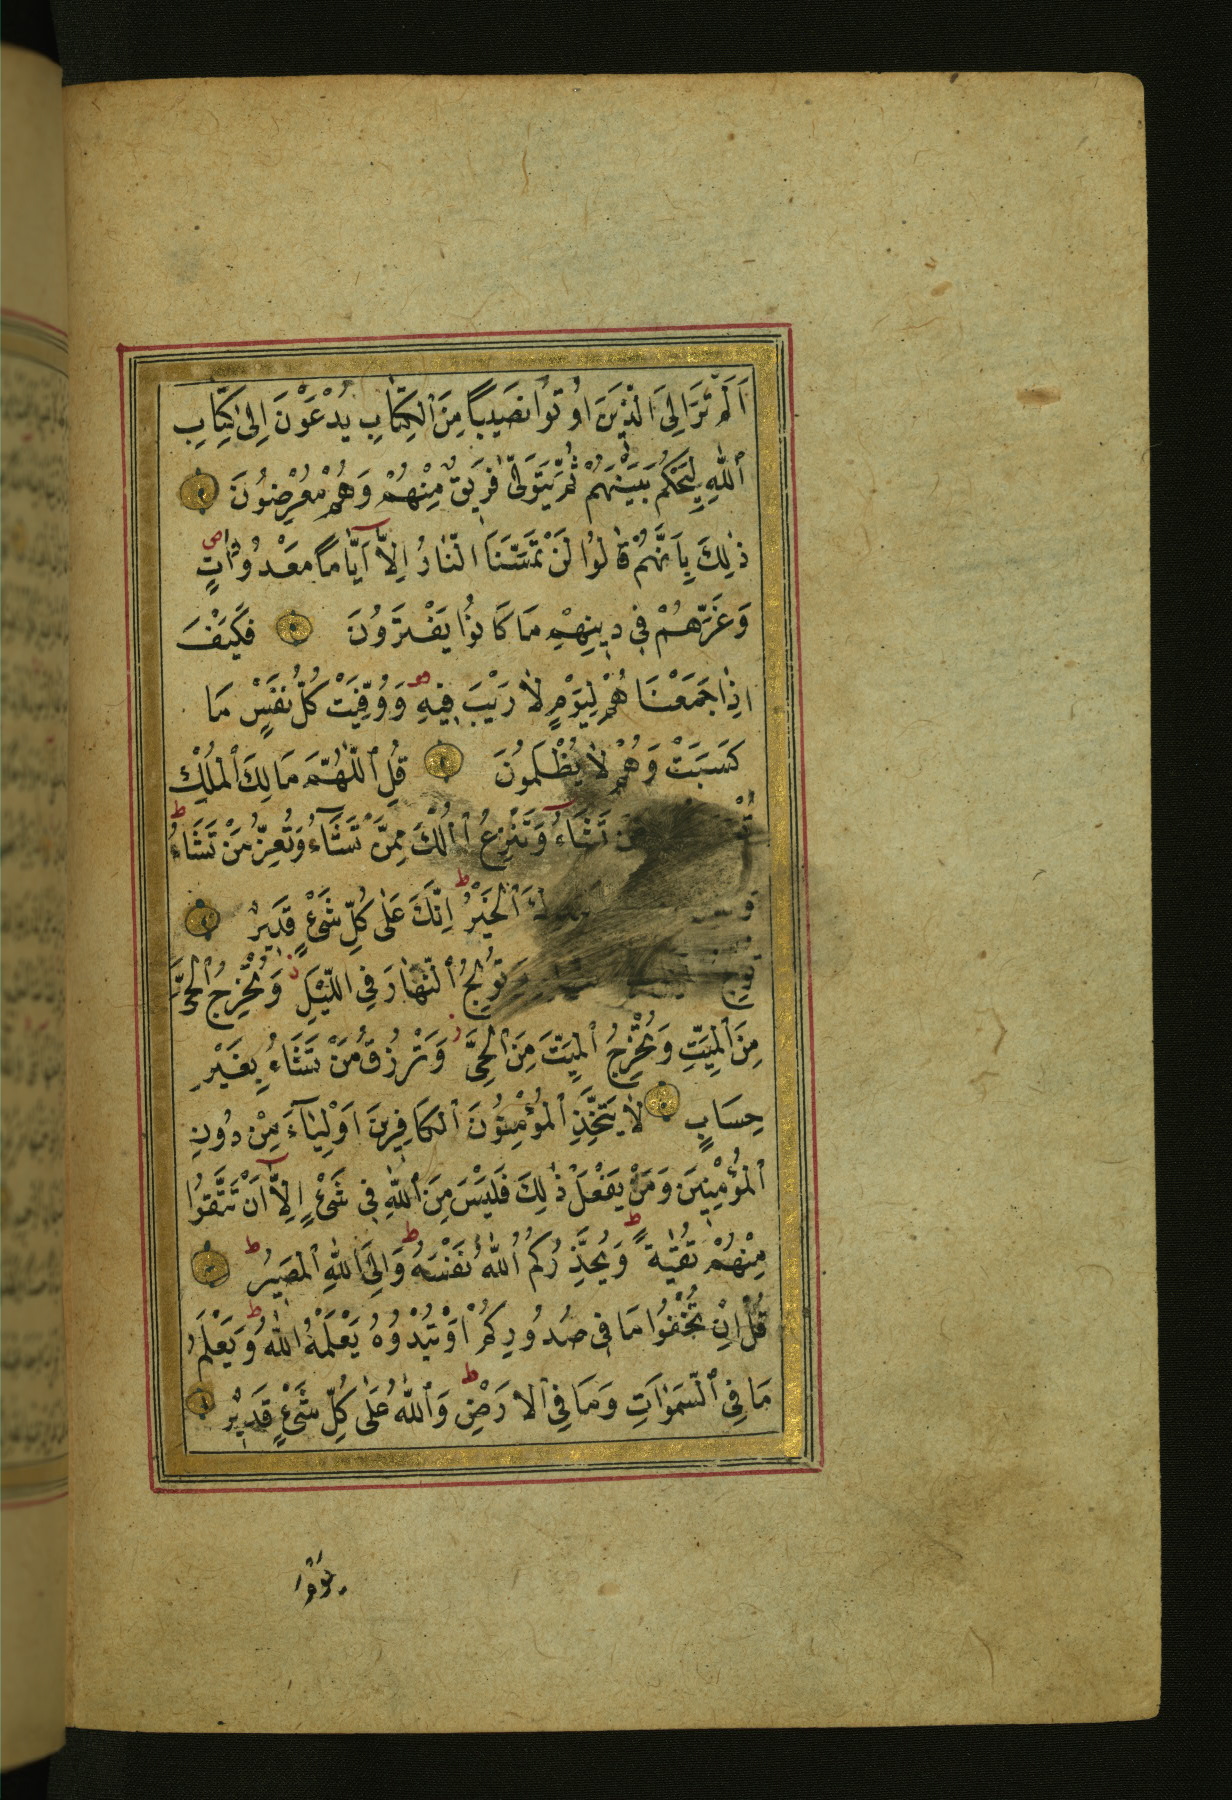 اَلَمْ تَرَ اِلَى الَّذِينَ اُوتُوا نَصِيباً مِنَ ٱلْكِتَابِ يُدْعَوْنَ اِلىٰ كِتَابِ
ٱللّٰهِ لِيَحْكُمَ بَيْنَهُمْ ثُمَّ يَتَوَلّٰى فَرِيقٌ مِنْهُمْ وَهُمْ مُعْرِضُونَ
ذٰلِكَ بِاَنَّهُمْ قَالُوا لَنْ تَمَسَّنَا النَّارُ اِلَّٓا اَيَّامًا مَعْدُودَاتٍ ص
وَغَرَّهُمْ فِى دِينِهِمْ مَا كَانُوا يَفْتَرُونَ فَكَيْفَ
اِذَا جَمَعْنَاهُمْ لِيَوْمٍ لَا رَيْبَ فِيهِ وَوُفِّيَتْ كُلُّ نَفْسٍ مَا
كَسَبَتْ وَهُمْ لَا يُظْلَمُونَ قُلِ ٱللّٰهُمَّ مَالِكَ ٱلْمُلْكِ
مَنْ تَشَٓاءُ وَتَنْزِعُ ٱلْمُلْكَ مِمَّنْ تَشَٓاءُ وَتُعِزُّ مَنْ تَشَاءُ ط
بِيَدِكَ ٱلْخَيْرُ ط اِنَّكَ عَلٰى كُلِّ شَىْءٍ قَدِيرٌ
وَتُولِجُ ٱلنَّهَارَ فِى اللَّيْلِ ز وَتُخْرِجُ ٱلْحَىَّ
مِنَ ٱلْمَيِّتِ وَتُخْرِجُ ٱلْمَيِّتَ مِنَ ٱلْحَىِّ ز وَتَرْزُقُ مَنْ تَشَاءُ بِغَيْرِ
حِسَابٍ لَا يَتَّخِذِ ٱلْمُؤْمِنُونَ ٱلْكَافِرِينَ اَوْلِيَٓاءَ مِنْ دُونِ
ٱلْمُؤْمِنِينَ وَمَنْ يَفْعَلْ ذٰلِكَ فَلَيْسَ مِنَ ٱللّٰهِ فِى شَىْءٍ اِلَّٓا اَنْ تَتَّقُوا
مِنْهُمْ تُقٰيةً ط وَيُحَذِّرُكُمُ ٱللّٰهُ نَفْسَهُ ط وَاِلَى ٱللّٰهِ ٱلْمَصِيرُ ط
قُلْ اِنْ تُخْفُوا مَا فِى صُدُورِكُمْ اَوْ تُبْدُوهُ يَعْلَمْهُ اللّٰهُ ط وَيَعْلَمُ
مَا فِى ٱلسَّمٰوَاتِ وَمَا فِى ٱلْاَرْضِ ط وَٱللّٰهُ عَلٰى كُلِّ شَىْءٍ قَدِيرٌ
يَوْمَ